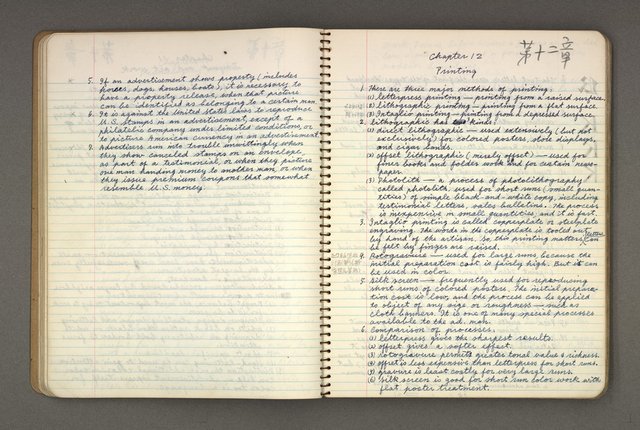 5. If an advertisement shows property (includes
horses, dogs, houses, boats), it is necessary to
have a property release, when that picture
can be identified as belonging to a certain man.
6. It is against the United States laws to reproduce
U.S. Stamps in an advertisement, except of a
philatelic company under limited conditions, or
to picture American currency in an advertisement.
7. Advertisers run into trouble unwittingly when
they show canceled stamps on an envelope,
as part of a testimonial, or when they picture
one man handing money to another man, or when
they issue premium coupons that somewhat
resemble U.S. money.
第十二章
Chapter 12
Printing
1. There are three major methods of printing:
(1) letterpress printing — printing from a raised surface.
(2) lithographic printing — printing from a flat surface.
(3) Intaglio printing — printing from a depressed surface.
2. Lithographic has kinds:
(1) direct lithographic — used extensively (but not
exclusively) for colored posters, store displays,
and cigar bands.
(2) offset lithographic (merely offset) — used for
finer books and folders work and for certain news-
paper.
(3) Photolith — a process of photolithography
called photolith, used for short runs (small quan-
tities) of simple black-and-white copy, including
testimonial letters, sales bulletins. The process
is inexpensive in small quantities, and it is fast.
3. Intaglio printing is called copperplate or steelplate
engraving. The words in the copperplate is tooled out
by hand of the artisan, so the printing matters letters can
be felt by finger are raised.
4. Rotogravure — used for large runs, because the
initial preparation cost is fairly high. But it can
be used in color.
5. Silk screen — frequently used for reproducing
short runs of colored posters. The initial prepara-
tion cost is low, and the process can be applied
to object of any size or roughness — such as
cloth banners. It is one of many special processes
available to the ad. man.
6. Comparison of processes.
(1) letterpress gives the sharpest results.
(2) offset gives a softer effect.
(3) rotogravure permits greater tonal value & richness.
(4) offset is less expensive than letterpress for short runs.
(5) gravure is least costly for very large runs.
(6) Silk screen is good for short run color work with
flat poster treatment.